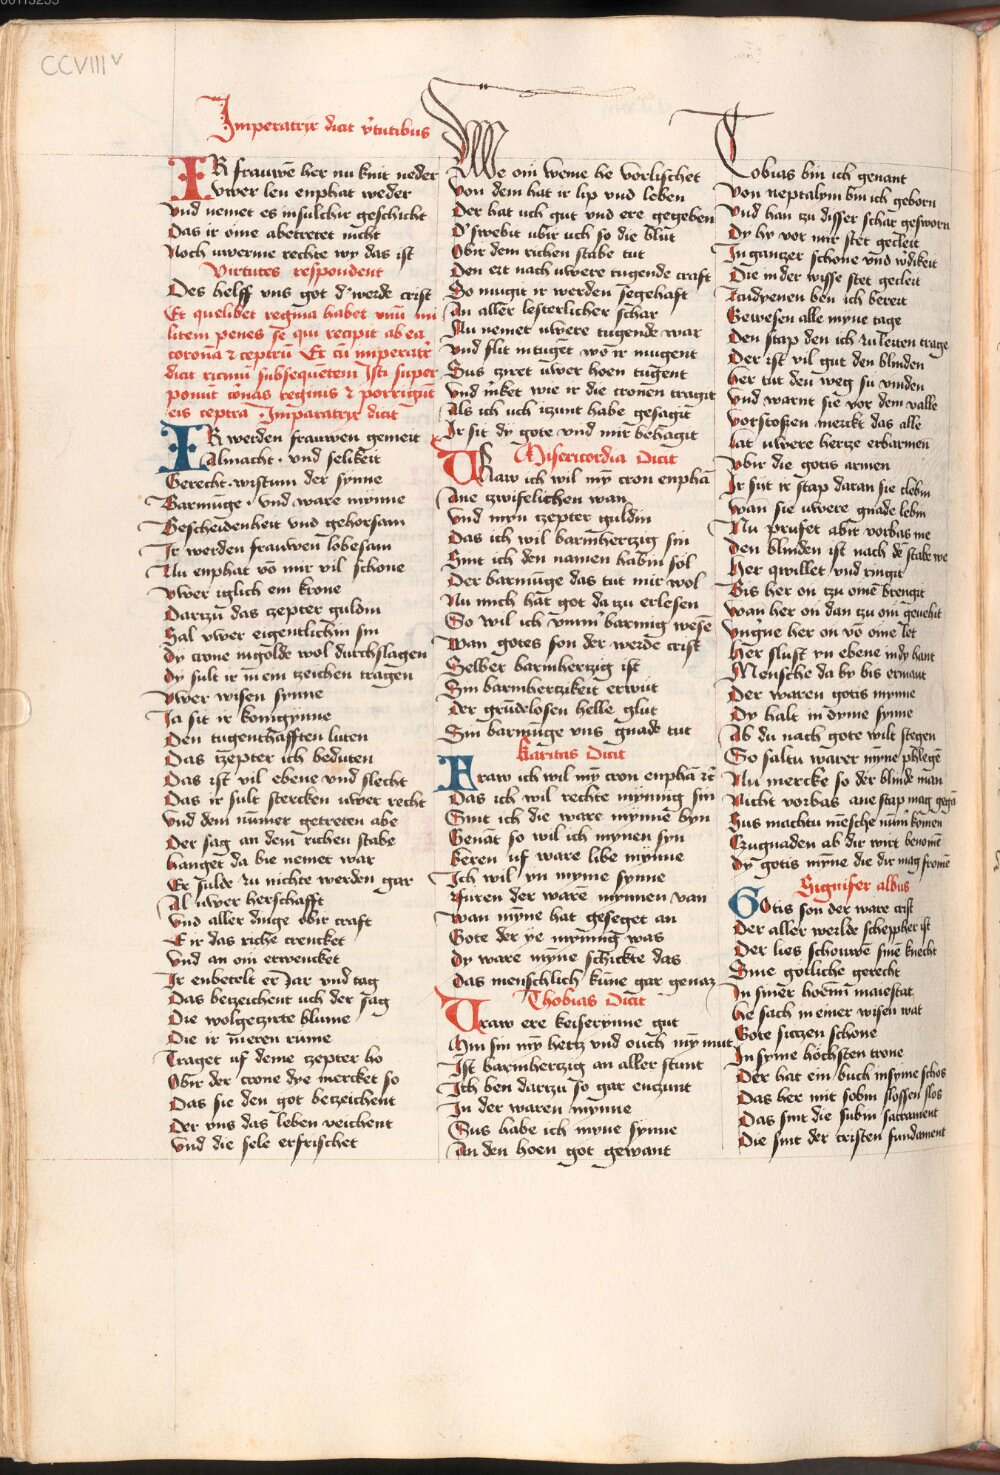 CCVIII v
Imperatrix dicit v̉tutibus
IR frauwē her nu knit neder
Vwer leu enphat weder
Vnd nemet es in sulchir geschicht
Das ir ome abetretet nicht
Noch uwerme rechte wy das ist
Virtutes respondent
Des helff vns got d' werde crist
Et quelibet regina habet vnū mi
litem penes se qui recipit ab ea
corona ⁊ ceptrū Et cū imperatx̉
dicit ricmū subsequētem Isti super
ponūt cōnas reginis ⁊ porrigūt
eis ceptra Imparatrix dicit
IR werden frauwen gemeit
Almacht · vnd selikeit
Gerecht · wistum der synne
Barmūge · vnd ware mynne
Bescheidenheit vnd gehorsam
Ir werden frauwen lobesam
Nu enphat vō mir vil schone
Vwer iglich em krone
Dartzū das zepter guldin
Sal vwer eigentlichin sin
Dy crone in golde wol durchslagen
Dy sult ir in em zeichen tragen
Vwer wisen synne
Ja sit ir konigynne
Den tugenthafften luten
Das tzepter ich beduten
Das ist vil ebene vnd slecht
Das ir sult stercken uwer recht
Vnd dem nūmet getreten abe
Der sag an dem richen stabe
hanget da bie nemet war
Er sulde zu nichte werden gar
Al uwer herschafft
Vnd aller dinge obir craft
E ir das riche crencket
Vnd an om etwencket
Ir enbetelt er Jar vnd tag
Das betzeichent uch der sag
Die wolgetzirte blume
Die ir in eren rume
Traget uf deme tzepter ho
Obir der crone dye mercket so
Das sie den got betzeichent
Der vns das leben reichent
Vnd die sele erfrischet
We om weme he vorlischet
Von dem hat ir lip vnd leben
Der hat uch gut vnd ere gegeben
D' swebit ubir uch so die blūt
Obir dem richen stabe tut
Den ert nach uwere tugende craft
So mugit ir werden segehaft
An aller lesterlicher schar
Nu nemet uwere tugende war
Vnd flit in tuget wō ir mugent
Sus tziret uwer hoen tugent
Vnd m̉ket wie ir die cronen tragit
Als ich uch itzunt habe gesagit
Ir sit dy gote vnd mir behagit
Misericordia Dicit
Uraw ich wil mȳ cron enphā
Ane zwifelichen wan
Vnd myn tzepter guldin
Das ich wil barmhertzig sin
Sint ich den namen habin sol
Der barmūge das tut mir wol
Nu mich hat got da zu erlesen
So wil ich vm̄m barmig wesē
Wan gotes son der werde crist
Selber barmhertzig ist
Sin barmhertzikeit erwūt
Der grūdelosen helle glut
Sin barmūge vns gnade tut
Karitas Dicit
Fraw ich wil mȳ cron enphā ⁊c̄
Das ich wil rechte mynnig sin
Sint ich die ware mynne byn
Genāt so wil ich mynen syn
keren uf ware libe mynne
Ich wil yn myme synne
Furen der ware mynnen van
Wan myne hat geseget an
Gote der ye mynnig was
Dy ware myne schickte das
Das menschlich kūne gar genaz
Thobias Dicit
Uraw ere keiserynne gut
Min sin mȳ hertz vnd ouch mȳ mut
Ist barmhertzig an aller stunt
Ich ben dartzu so gar entzunt
In der waren mynne
Sus habe ich myne synne
An den hoen got gewant
Tobias bin ich genant
Von neptalym bin ich geborn
Vnd han zu disser schar gesworn
Dy hy vor mir stet gecleit
In gantzer schone vnd wdikeit
Die in der wisse stet gecleit
Tzu dyenen ben ich bereit
Gewesen alle myne tage
Den stap den ich zu leiten trage
Der ist vil gut den blinden
Her tut den weg su vinden
Vnd warnt sie vor dem valle
Vorstossen merckt das alle
Lat uwere hertze erbarmen
Vbir die gotis armen
Ir sint ir stap daran sie clebin
Wan sie uwere gnade lebin
Nu prufet abir vorbas me
Den blinden ist nach dē stabe we
Her qwillet vnd ringit
Bis her on tzu omē brengit
Wan her on dan tzu om geuehit
Vng̉ne her on vō ome let
Her slust yn ebene in dy hant
Mensche da by bis ermant
Der waren gotis mynne
Dy halt in dyme synne
Ab du nach gote wilt stegen
So saltu warer myne phlegē
Nu mercke so der blinde man
Nicht vorbas ane stap mag gegā
Sus machtu mēsche nūm komen
Czu gnaden ab dir wirt benomē
Dy gotis myne die dir mag fromē
Signifer albus
GOtis son der ware crist
Der aller werlde scheppher ist
Der lies schouwē sine knecht
Sine gotliche gerecht
In siner hoenm̄ maiestat
he sach in einer wisen wat
Gote sitzen schone
In syme hochsten trone
Der hat ein buch in syme schos
Das her mit sobin slossen slos
Das sint die subin sacrament
Die sint der cristen fundament